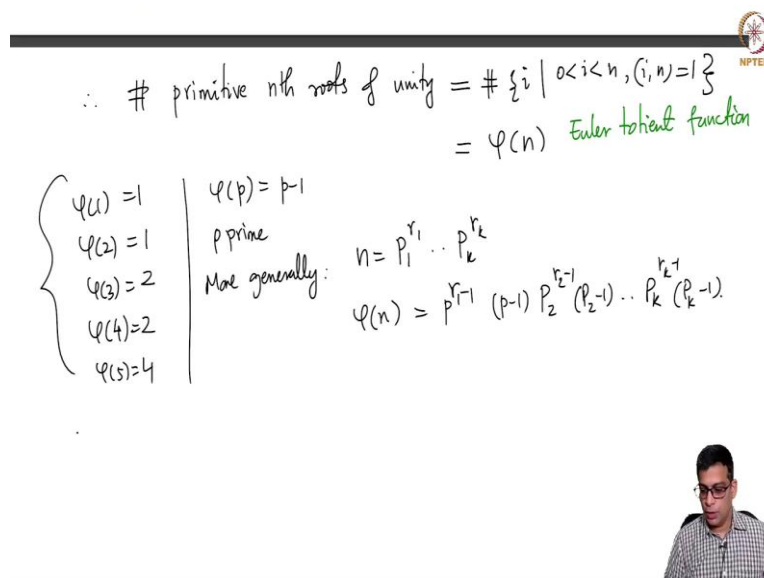 NPTEL
∴ # primitive nth roots of unity = # {i | 0<i<n, (i,n)=1}
= φ(n) Euler totient function
φ(1) = 1
φ(2) = 1
φ(3) = 2
φ(4) = 2
φ(5) = 4
φ(p) = p-1
p prime
More generally: n = p_1^{r_1} .. p_k^{r_k}
φ(n) = p^{r_1-1} (p-1) p_2^{r_2-1} (p_2-1) .. p_k^{r_k-1} (p_k-1).